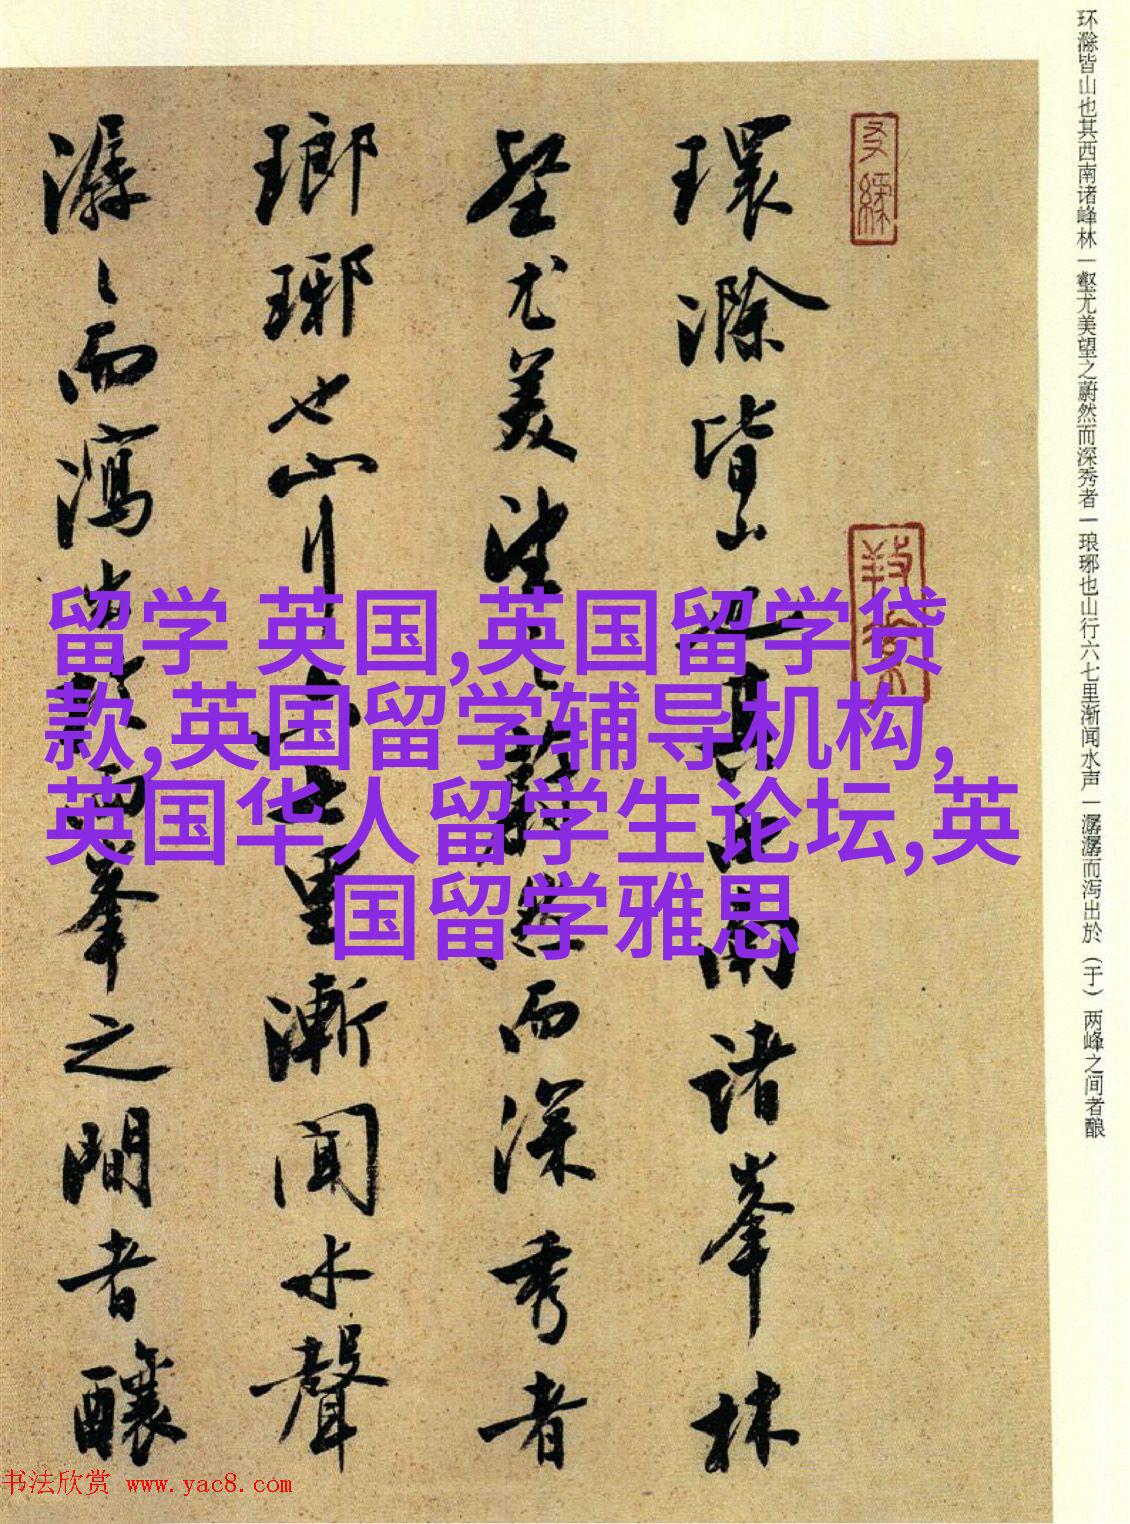 环滁皆山也其西南诸峰林一壑尤美望之蔚然而深秀者一琅琊也山行六七里渐闻水声一潺潺而泻出於（于）两峰之间者酿
環滁皆山也其西南诸峯林
壑尤美望之蔚然而深秀者
瑯琊也山行六七里漸聞水聲
潺々而瀉出於兩峯之間者釀
留学 英国,英国留学贷
款,英国留学辅导机构,
英国华人留学生论坛,英
国留学雅思
书法欣赏 www.yac8.com